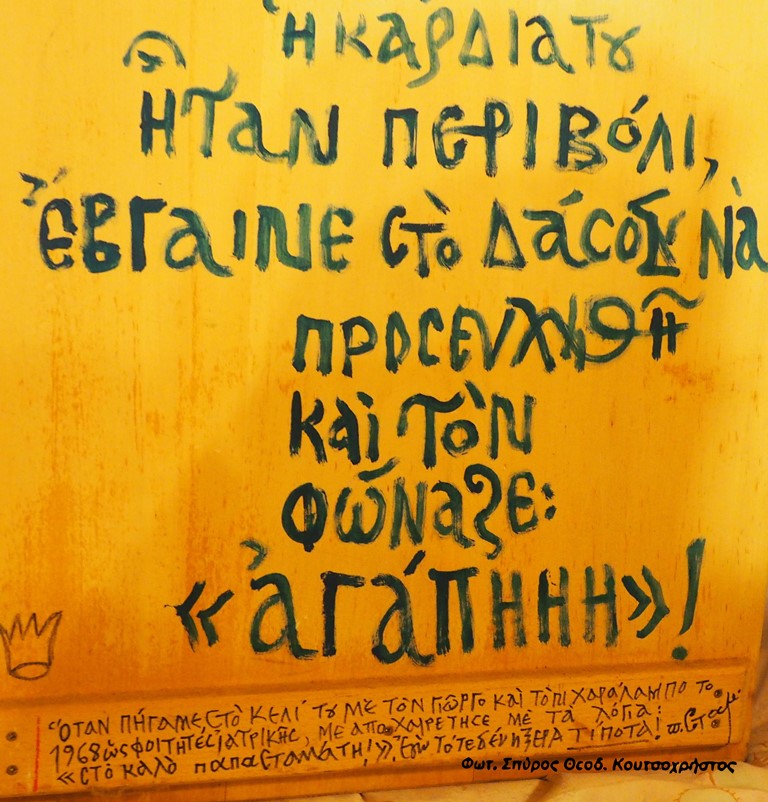 Ἡ ΚΑΡΔΙΑ ΤȢ
ἦΤαΝ ΠΕΡΙΒόΛΙ,
ἜΒΓαΙΝΕ ϹΤὸ ΔάϹΟΣ Νὰ
ΠΡΟϹΕΥΧΗΘῆ
ΚαὶΤὸΝ
Φώναξε:
«ἀΓάΠΗΗΗ»!
"ὍΤΑΝ ΠΗΓΑΜΕ ϹΤὸ ΚΕΛΙ ΤȢ ΜΕ ΤὸΝ ΓΙῶΡΓΟ Καὶ ΤὸΠ ΧΑΡάΛΑΜΠΟ ΤΟ
1968 ὡς ΦΟΙΤΗΤές ἰΑΤΡΙΚῆς, ΜΕ ΑΠΟΧΑΙΡΕΤΗϹΕ ΜΕ ΤΑ ΛΟΓΙΑ:
«ϹΤὸ ΚαΛὸ ΠΑΠΑϹΤΑΜΑΤΗ!». Ἐγὼ ΤόΤΕ ΔέΝ ἬΞΕΡΑ ΤΙΠΟΤΑ! π. Σταμ.
Φωτ. Σπύρος Θεοδ. Κουτσοχρήστος